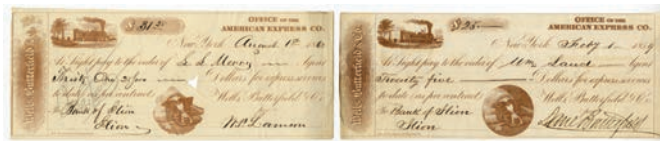 $31.20
OFFICE OF THE
AMERICAN EXPRESS CO.
New York August 1st 186
At Sight pay to the order of Agent
Thirty One 20/100 Dollars for express services
to date as per contract Wells, Butterfield & Co.
To Bank of Ilion
Ilion
Wells Butterfield & Co.
$25
OFFICE OF THE
AMERICAN EXPRESS CO.
New York Feby 1 1859
At Sight pay to the order of Wm Agent
Twenty five Dollars for express services
to date as per contract Wells, Butterfield & Co.
To Bank of Ilion
Ilion
Butterfield
Wells Butterfield & Co.